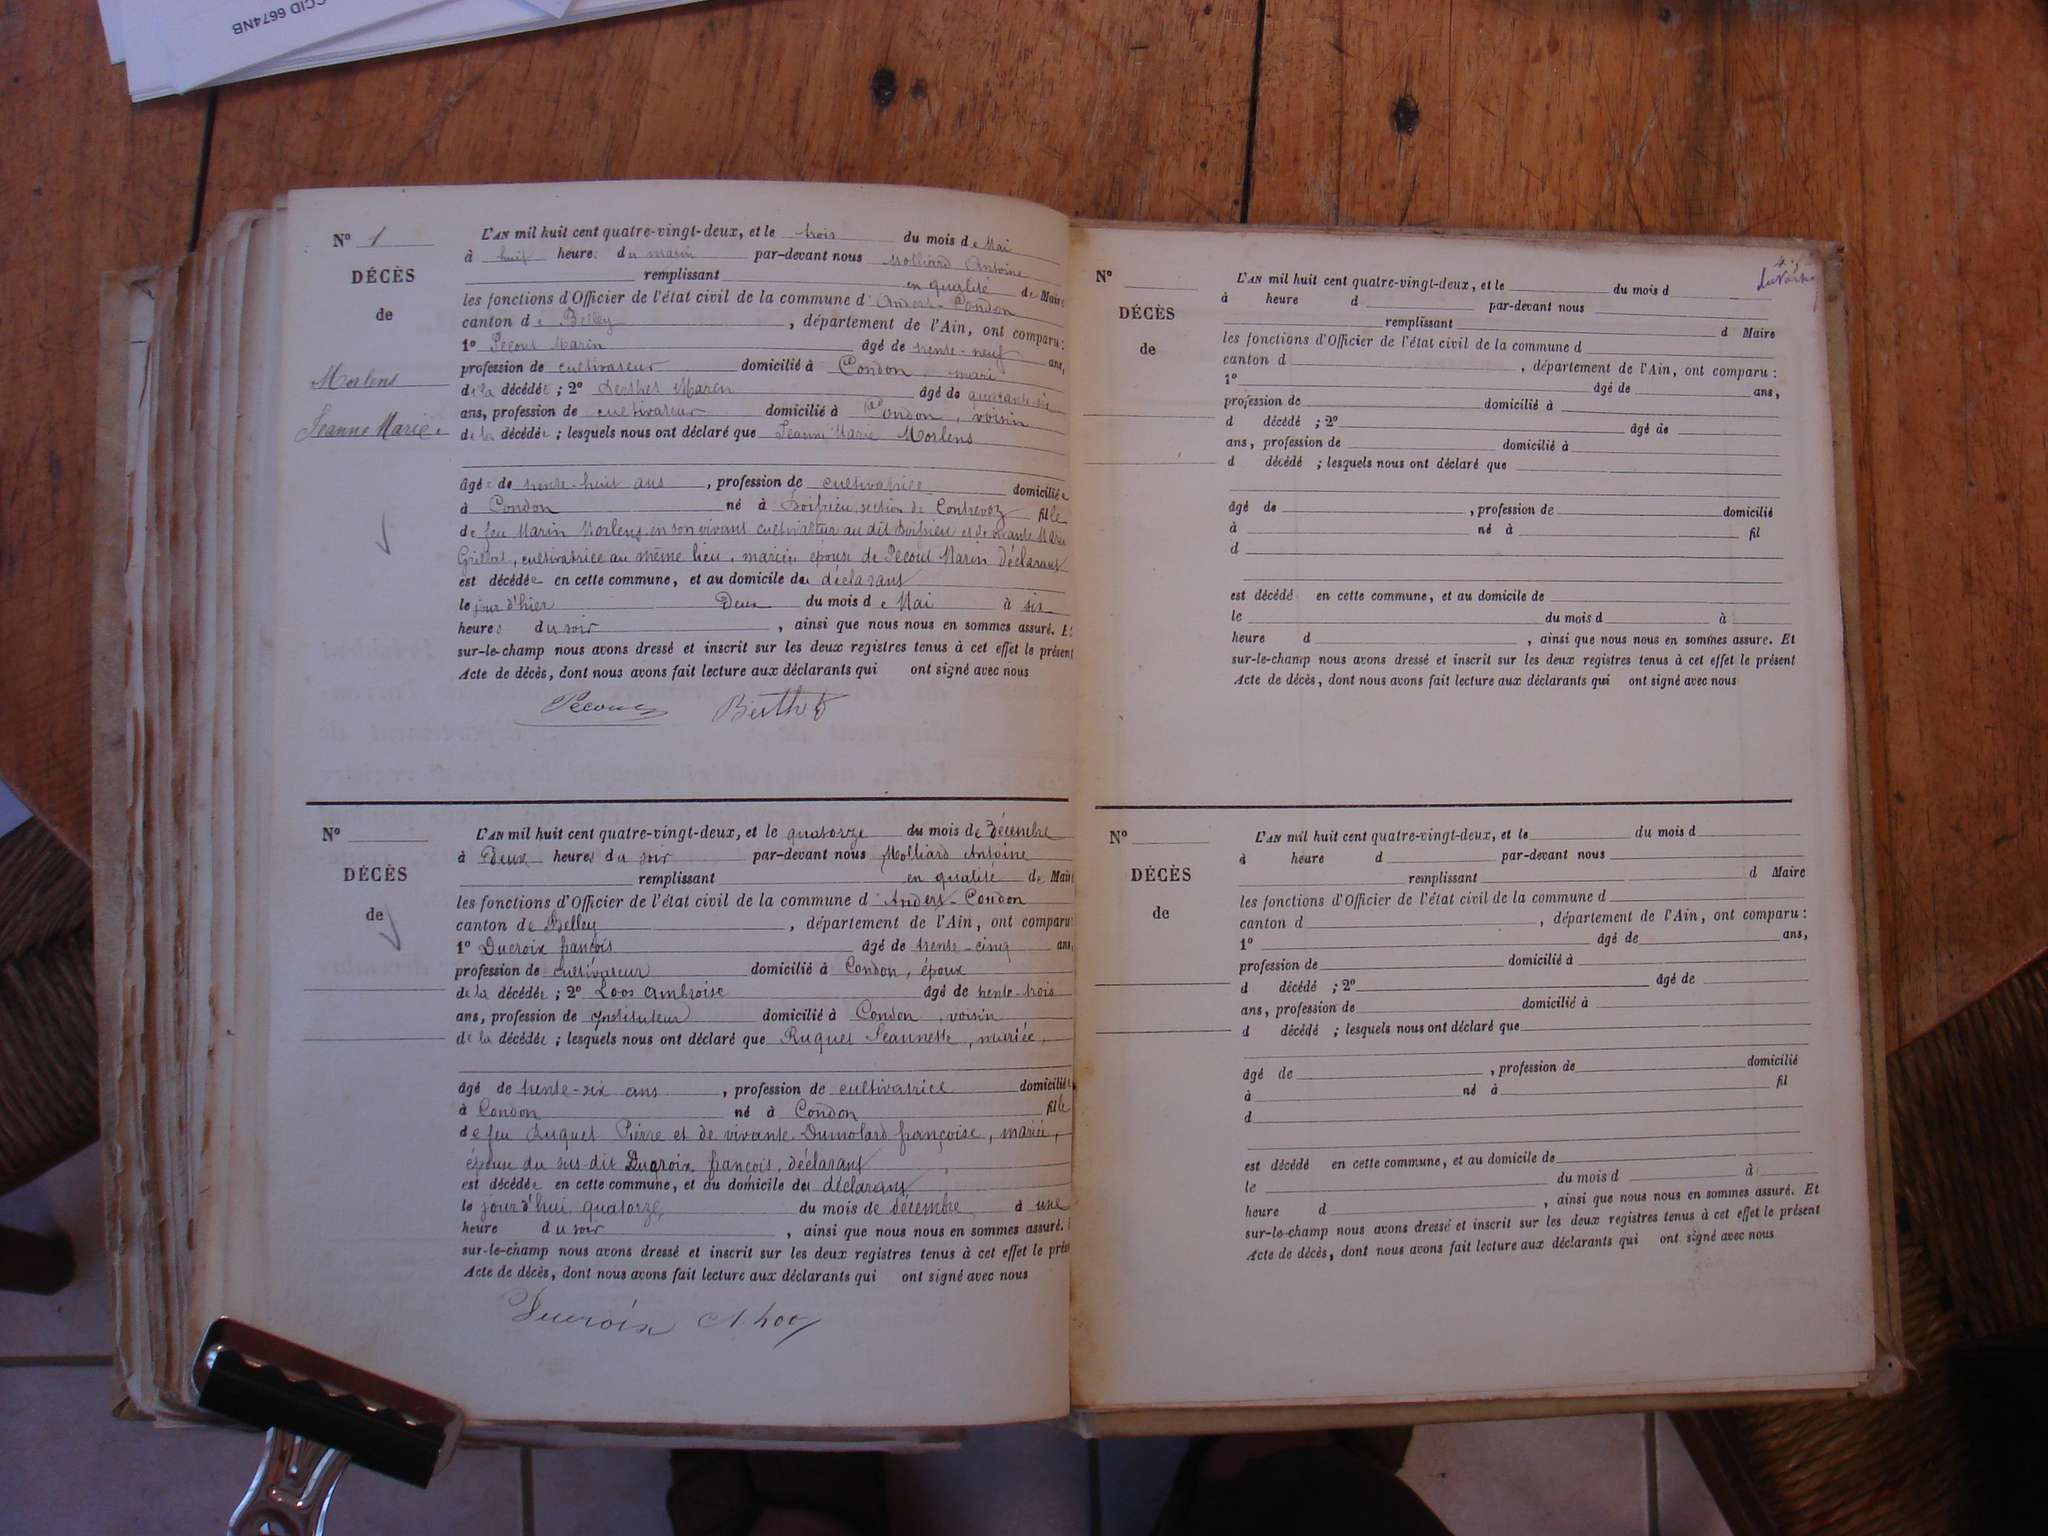 CCID 6674NB
N° 1
DÉCÈS
de
Morlens
Jeanne Marie
L'AN mil huit cent quatre-vingt-deux, et le trois du mois de Mai
à huit heures du matin par-devant nous Molliard Antoine
remplissant en qualité de Maire
les fonctions d'Officier de l'état civil de la commune d'Andert-Condon
canton de Belley, département de l'Ain, ont comparu :
1° Pecoud Marin âgé de trente-neuf ans,
profession de cultivateur domicilié à Condon, mari
de la décédée ; 2° Berthet Marin âgé de quarante-six
ans, profession de cultivateur domicilié à Condon, voisin
de la décédée ; lesquels nous ont déclaré que Jeanne Marie Morlens
âgée de trente-huit ans, profession de cultivatrice domiciliée
à Condon né à Boissieu section de Contrevoz fille
de feu Marin Morlens en son vivant cultivateur au dit Boissieu et de vivante Marie
cultivatrice au même lieu, mariée, épouse de Pecoud Marin déclarant
est décédée en cette commune, et au domicile du déclarant
le jour d'hier Deux du mois de Mai à six
heures du soir, ainsi que nous nous en sommes assuré. Et
sur-le-champ nous avons dressé et inscrit sur les deux registres tenus à cet effet le présent
Acte de décès, dont nous avons fait lecture aux déclarants qui ont signé avec nous
Pecoud Berthet
N°
DÉCÈS
de
L'AN mil huit cent quatre-vingt-deux, et le quatorze du mois de Décembre
à Deux heures du soir par-devant nous Molliard Antoine
remplissant en qualité de Maire
les fonctions d'Officier de l'état civil de la commune d'Andert-Condon
canton de Belley, département de l'Ain, ont comparu :
1° Ducroix françois âgé de trente-cinq ans,
profession de cultivateur domicilié à Condon, époux
de la décédée ; 2° Loos Ambroise âgé de trente-trois
ans, profession de Instituteur domicilié à Condon, voisin
de la décédée ; lesquels nous ont déclaré que Ruquet Jeannette, mariée,
âgé de trente-six ans, profession de cultivatrice domiciliée
à Condon né à Condon fille
de feu Ruquet Pierre et de vivante Dumolard françoise, mariée,
épouse du sus-dit Ducroix françois, déclarant
est décédée en cette commune, et au domicile du déclarant
le jour d'hui quatorze du mois de décembre à une
heure du soir, ainsi que nous nous en sommes assuré.
sur-le-champ nous avons dressé et inscrit sur les deux registres tenus à cet effet le prés
Acte de décès, dont nous avons fait lecture aux déclarants qui ont signé avec nous
Ducroix A. Loos
N°
DÉCÈS
de
L'AN mil huit cent quatre-vingt-deux, et le du mois d
à heure d par-devant nous
remplissant d Maire
les fonctions d'Officier de l'état civil de la commune d
canton d, département de l'Ain, ont comparu :
1° âgé de ans,
profession de domicilié à
d décédé ; 2° âgé de
ans, profession de domicilié à
d décédé ; lesquels nous ont déclaré que
âgé de, profession de domicilié
à né à fil
d
est décédé en cette commune, et au domicile de
le du mois d à
heure d, ainsi que nous nous en sommes assuré. Et
sur-le-champ nous avons dressé et inscrit sur les deux registres tenus à cet effet le présent
Acte de décès, dont nous avons fait lecture aux déclarants qui ont signé avec nous
N°
DÉCÈS
de
L'AN mil huit cent quatre-vingt-deux, et le du mois d
à heure d par-devant nous
remplissant d Maire
les fonctions d'Officier de l'état civil de la commune d
canton d, département de l'Ain, ont comparu :
1° âgé de ans,
profession de domicilié à
d décédé ; 2° âgé de
ans, profession de domicilié à
d décédé ; lesquels nous ont déclaré que
âgé de, profession de domicilié
à né à fil
d
est décédé en cette commune, et au domicile de
le du mois d à
heure d, ainsi que nous nous en sommes assuré. Et
sur-le-champ nous avons dressé et inscrit sur les deux registres tenus à cet effet le présent
Acte de décès, dont nous avons fait lecture aux déclarants qui ont signé avec nous